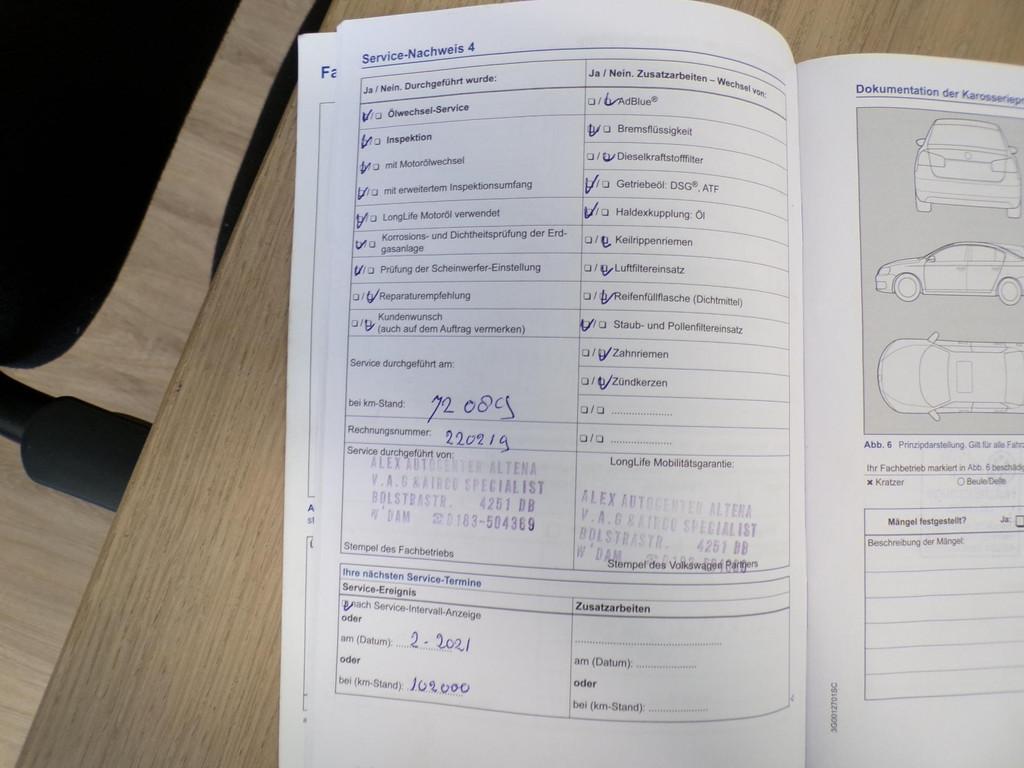 Service-Nachweis 4
Ja / Nein. Durchgeführt wurde:
Ölwechsel-Service
Inspektion
mit Motorölwechsel
mit erweitertem Inspektionsumfang
LongLife Motoröl verwendet
Korrosions- und Dichtheitsprüfung der Erd-
gasanlage
Prüfung der Scheinwerfer-Einstellung
Reparaturempfehlung
Kundenwunsch
(auch auf dem Auftrag vermerken)
Service durchgeführt am:
bei km-Stand: 72 089
Rechnungsnummer: 220219
Service durchgeführt von:
ALEX AUTOCENTER ALTENA
V.A.G & AIRCO SPECIALIST
BOLSTRASTR. 4251 DB
W'DAM ☎0183-504369
Stempel des Fachbetriebs
Ja / Nein. Zusatzarbeiten – Wechsel von:
AdBlue®
Bremsflüssigkeit
Dieselkraftstofffilter
Getriebeöl: DSG®, ATF
Haldexkupplung: Öl
Keilrippenriemen
Luftfiltereinsatz
Reifenfüllflasche (Dichtmittel)
Staub- und Pollenfiltereinsatz
Zahnriemen
Zündkerzen
LongLife Mobilitätsgarantie:
ALEX AUTOCENTER ALTENA
V.A.G & AIRCO SPECIALIST
BOLSTRASTR. 4251 DB
W'DAM
Stempel des Volkswagen Partners
Ihre nächsten Service-Termine
Service-Ereignis
nach Service-Intervall-Anzeige
oder
am (Datum): 2-2021
oder
bei (km-Stand): 102000
Zusatzarbeiten
am (Datum):
oder
bei (km-Stand):
4
3G0012701SC
Dokumentation der
Abb. 6 Prinzipdarstellung. Gilt für alle
Ihr Fachbetrieb markiert in Abb. 6
Kratzer
Beule/Delle
Mängel festgestellt? Ja:
Beschreibung der Mängel: